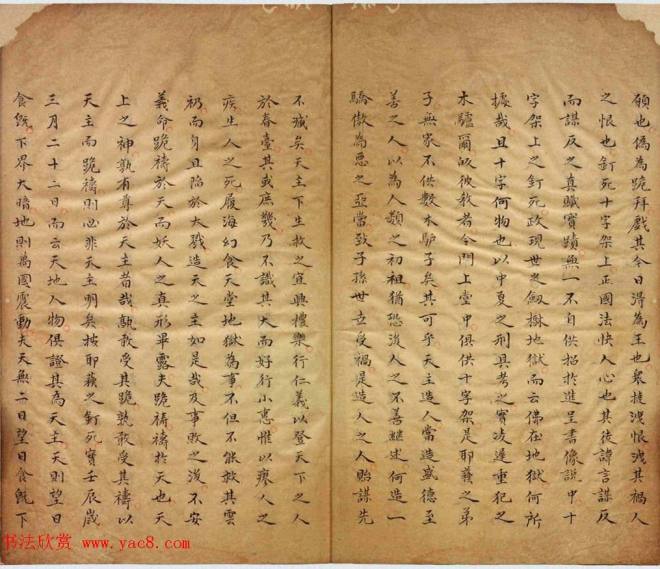 願也偽為跪拜戲其今日得為王也眾挂洩恨洩其禍人
之恨也釘死十字架上正國法快人心也其徒諱言謀反
而謀反之真贓實蹟無一不自供招於進呈書像說中十
字架上之釘死政現世之劍樹地獄而云佛在地獄何所
據哉且十字何物也以中夏之刑具考之實凌遲重犯之
木驢爾的彼教者令門上堂中俱供十字架是耶穌之弟
子無家不供數木驢子矣其可乎天主造人當造盛德至
善之人以為人類之初祖猶恐後人之不善繼述何造一
驕傲為惡之亞當致子孫世立受禍是造人之人貽謀先
不臧矣天主下生救之宜興禮樂行仁義以登天下之人
於春臺其或庶幾乃不識其大而好行小惠惟以療人之
疾生人之死履海幻食天堂地獄為事不但不能救其雲
礽而身且陷於大戮造天之主如是哉及事敗之後不安
義命跪禱於天而妖人之真形畢露夫跪禱禱於天也天
上之神孰有尊於天主者哉孰敢受其跪孰敢受其禱以
天主而跪禱則必非天主明矣按耶穌之釘死實壬辰歲
三月二十二日而云天地人物俱證其為天主天則望日
食既下界大暗地則萬國震動夫天無二日望日食既下
书法欣赏 www.yac8.com